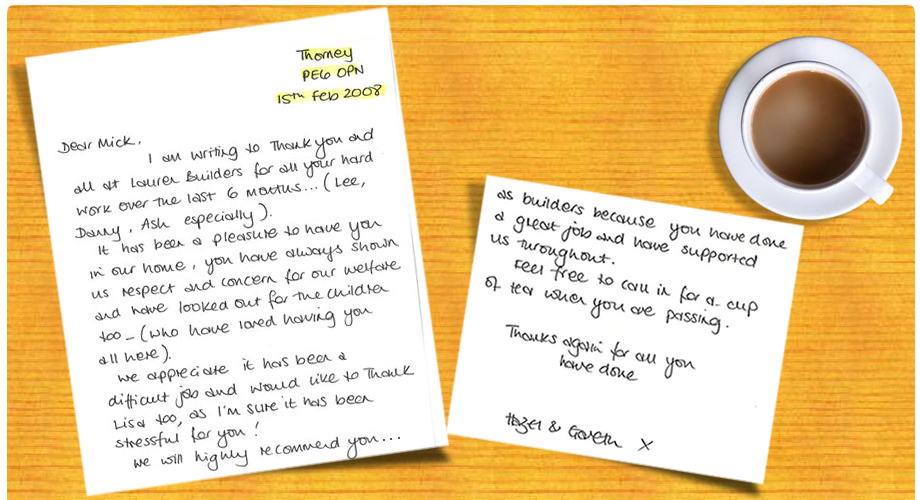 Thorney
PE6 0PN
15th Feb 2008
Dear Mick,
I am writing to Thank you and
all at Laurel Builders for all your hard
work over the last 6 months... (Lee,
Danny, Ash especially).
It has been a pleasure to have you
in our home, you have always shown
us respect and concern for our welfare
and have looked out for the children
too - (who have loved having you
all here).
we appreciate it has been a
difficult job and would like to Thank
Lisa too, as I'm sure it has been
stressful for you!
we will highly recommend you...
as builders because you have done
a great job and have supported
us throughout.
Feel free to call in for a cup
of tea when you are passing.
Thanks again for all you
have done
Hazel & Gareth X